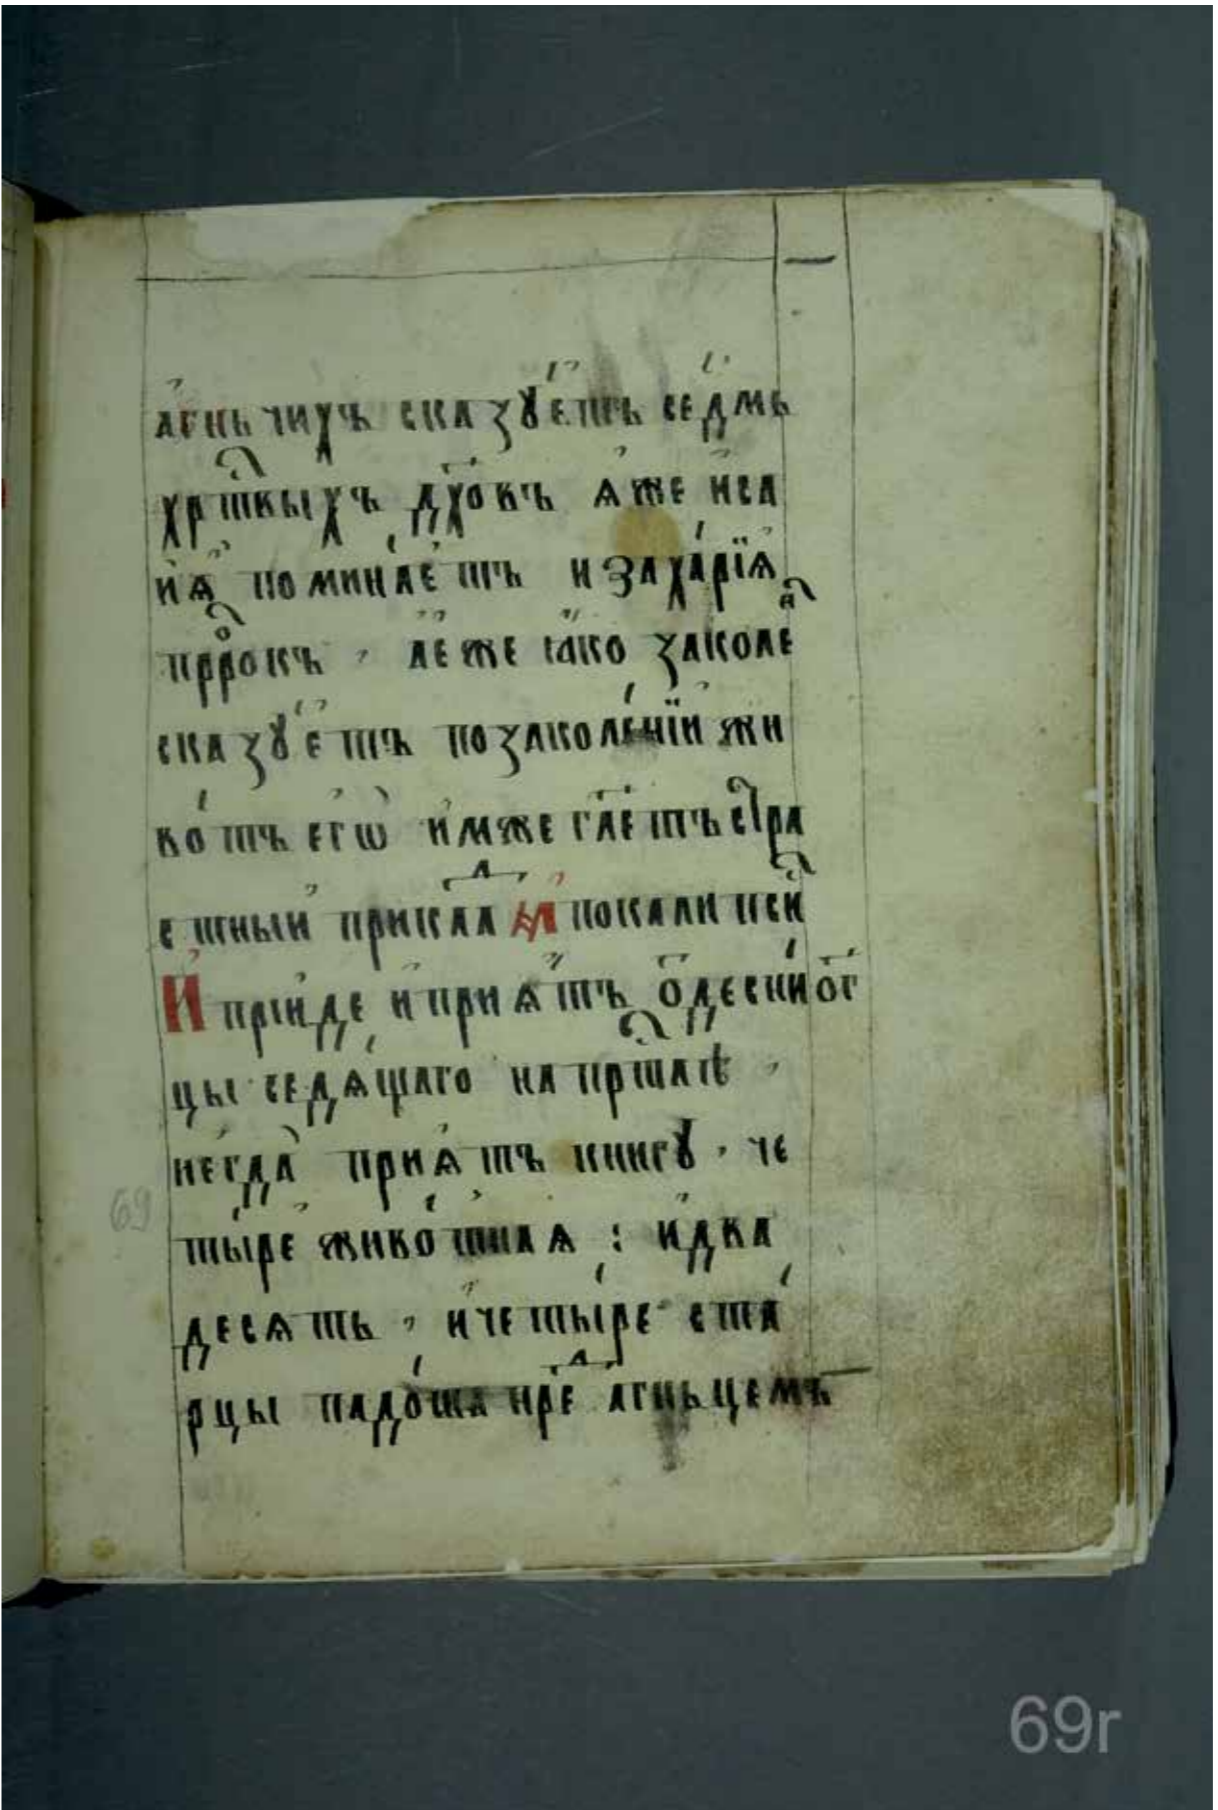 а҆гньчихъ сказꙋ́етъ се́дмь
хрⷭ҇твыхъ дх҃овъ ꙗ҆́же и҆са
и҆ꙗ҆ помина́етъ и заха́рїѧ
прⷪ҇рокъ, а҆е҆же ꙗ҆́ко заколеⷩ҇
сказꙋ́етъ позаколе́нїи жи
во́тъ є҆гѡ̀ и҆мже гл҃етъ стра
стныи прикла̑ⷣ А҆покалиⷱ҇псїй
И҆ прїи́де и҆ прїѧ́тъ ѿ десни́ ѻг҃
цы седѧ́щаго на прⷭ҇тлѣ ,
не́гда̀ прїѧ́тъ книгꙋ , че
ты́ре живо́тнаѧ : и҆ два
десѧть , и҆ четы́ре ста́
рцы падо́ша прⷣе а҆гньцемъ
69
69r